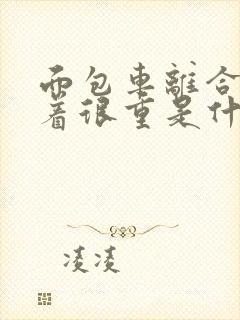 面包車離合
着很重是什
凌凌